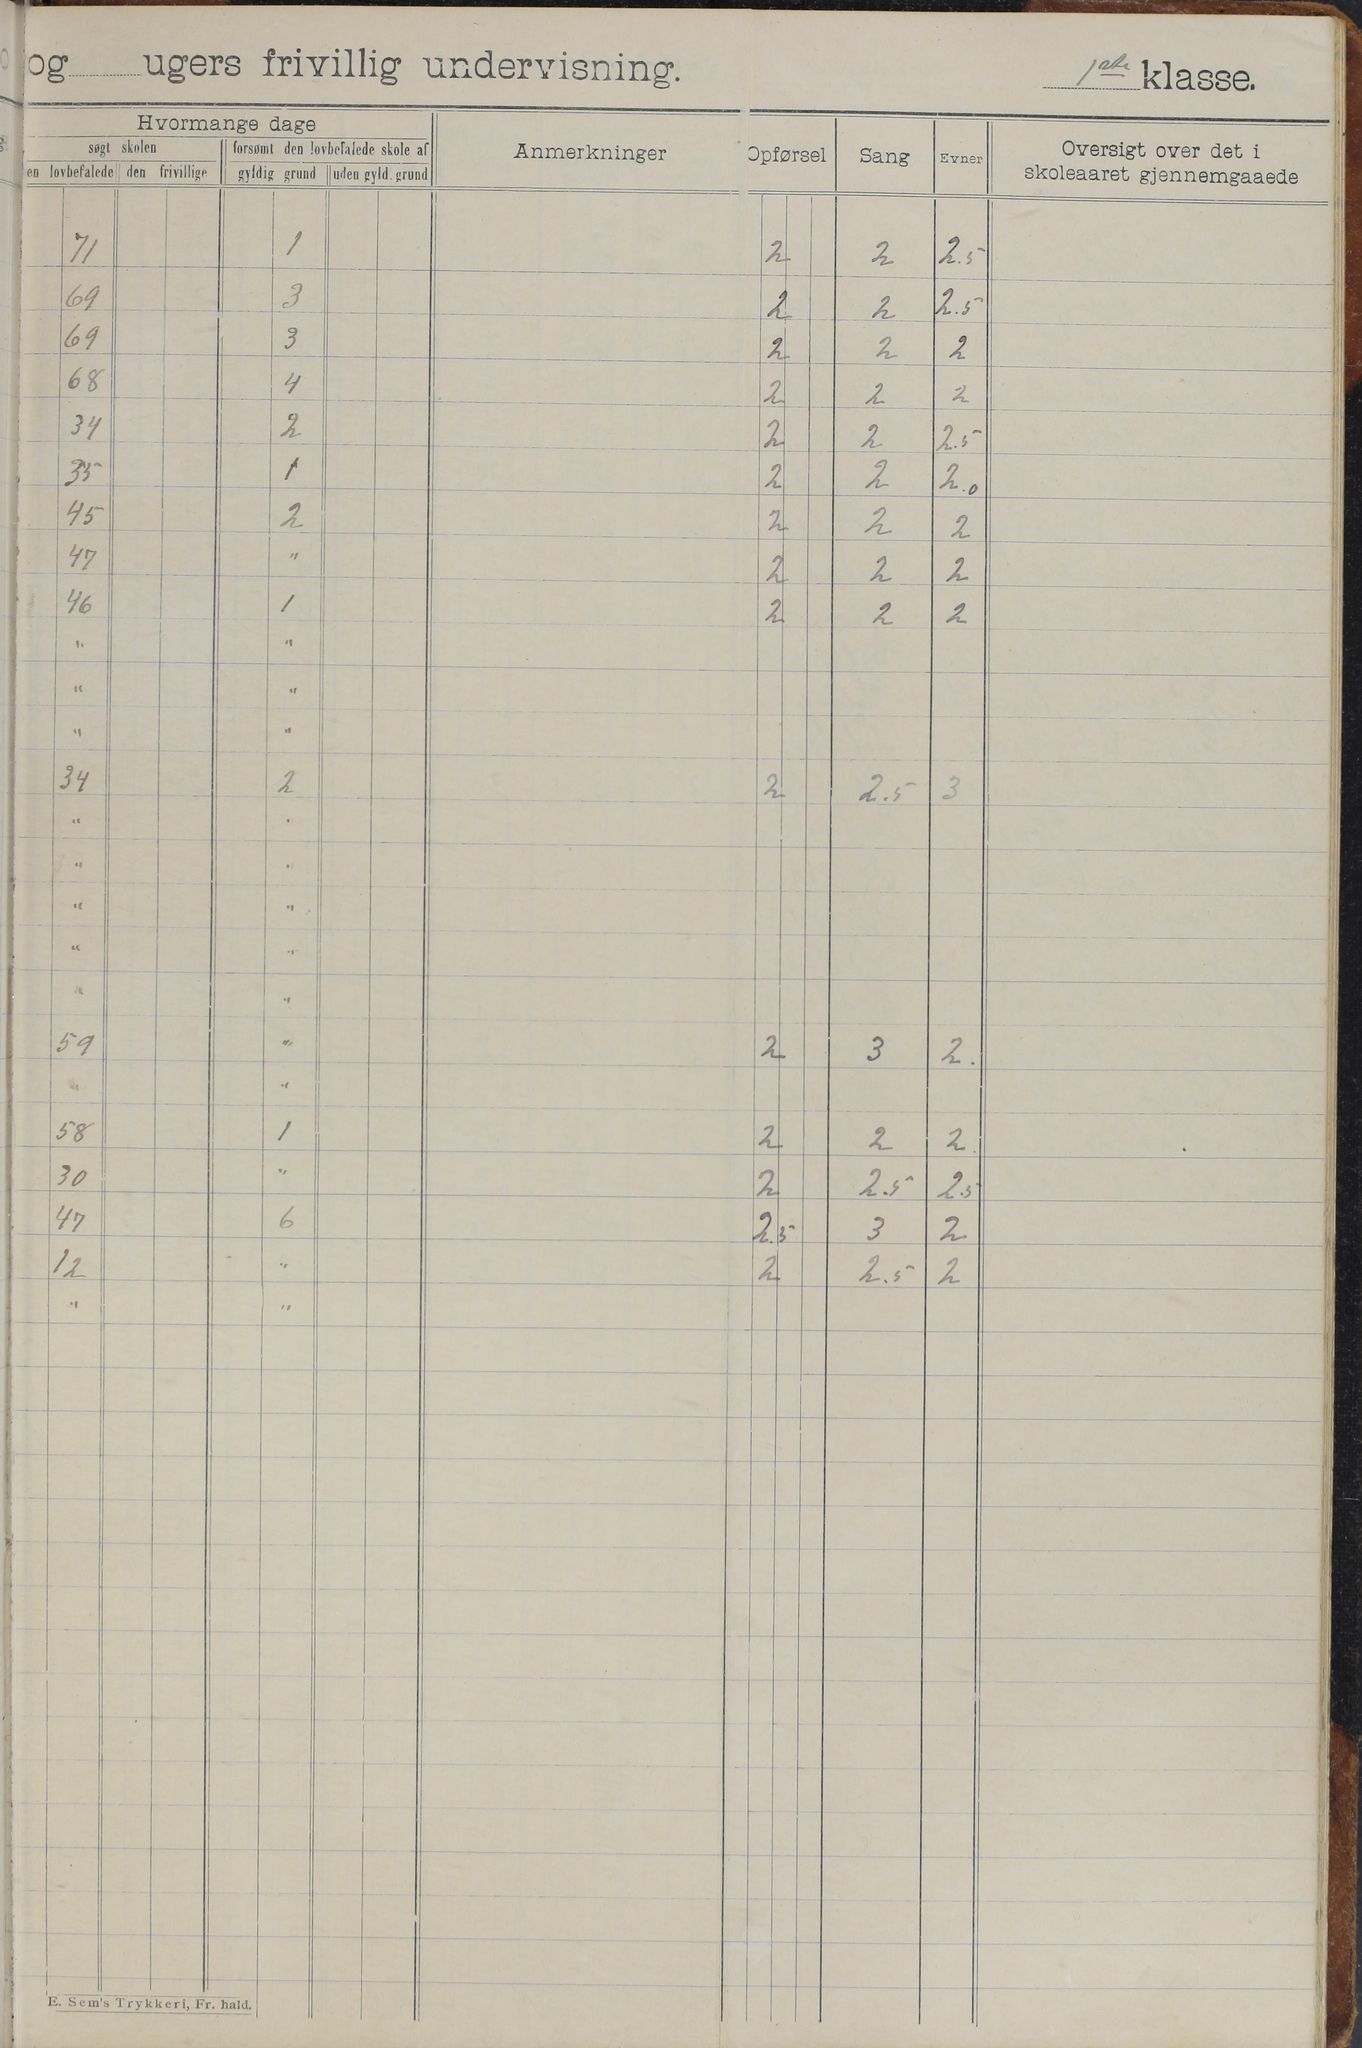 og ugers frivillig undervisning. 1ste klasse.
Hvormange dage
søgt skolen forsømt den lovbefalede skole af
Anmerkninger Opførsel Sang Evner Oversigt over det i skoleaaret gjennemgaaede
en lovbefalede den frivillige gyldig grund uden gyld. grund
71 1 2 2 2.5
69 3 2 2 2.5
69 3 2 2 2
68 4 2 2 2
34 2 2 2 2.5
35 1 2 2 2.0
45 2 2 2 2
47 " 2 2 2
46 1 2 2 2
" "
" "
" "
34 2 2 2.5 3
" "
" "
" "
" "
" "
59 " 2 3 2.
" "
58 1 2 2 2.
30 " 2 2.5 2.5
47 6 2.5 3 2
12 " 2 2.5 2
" "
E. Sem's Trykkeri, Fr. hald.